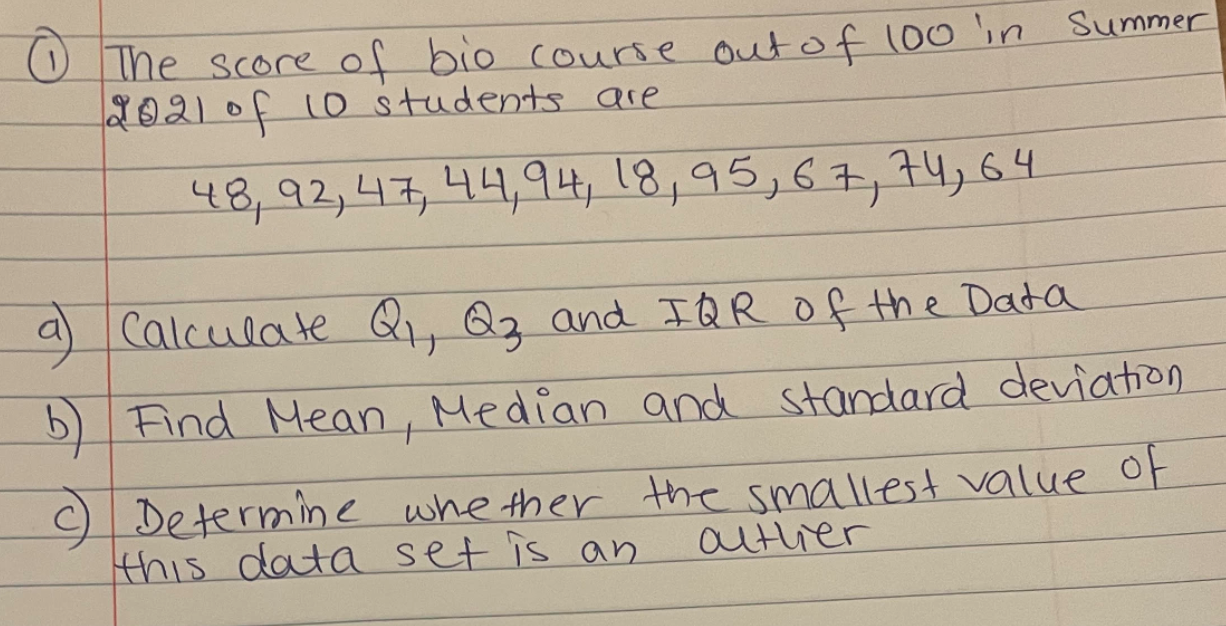 ① The score of bio course out of 100 in Summer
2021 of 10 students are
48, 92, 47, 44, 94, 18, 95, 67, 74, 64
a) Calculate Q1, Q3 and IQR of the Data
b) Find Mean, Median and standard deviation
c) Determine whether the smallest value of
this data set is an outlier